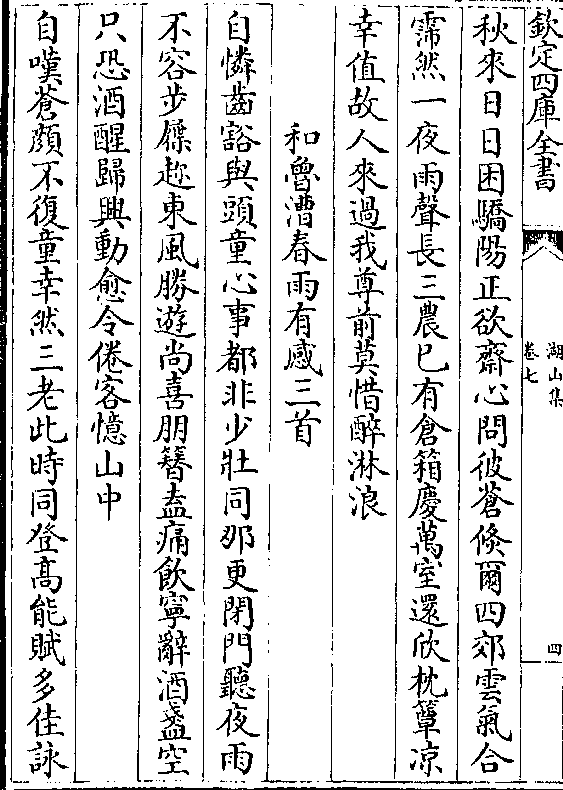 欽定四庫全書
湖山集
卷七
四
秋來日日困驕陽正欲齋心問彼蒼倏爾四郊雲氣合
霈然一夜雨聲長三農已有倉箱慶萬室還欣枕簟凉
幸值故人來過我尊前莫惜醉淋浪
和魯漕春雨有感三首
自憐齒豁與頭童心事都非少壯同那更閉門聽夜雨
不容步屧趂東風勝遊尚喜朋簪盍痛飲寧辭酒盞空
只恐酒醒歸興動愈令倦客憶山中
自嘆蒼顔不復童幸然三老此時同登髙能賦多佳詠